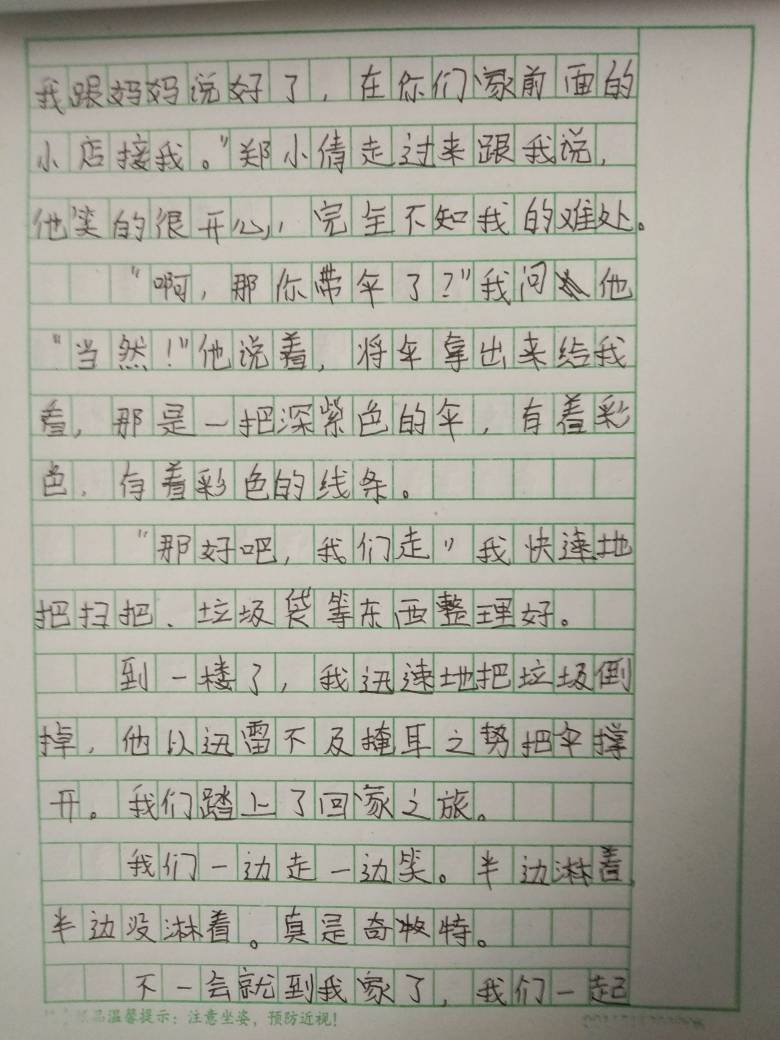 我跟妈妈说好了，在你们家前面的
小店接我。"郑小倩走过来跟我说，
他笑的很开心，完全不知我的难处。
"啊，那你带伞了？"我问他
"当然！"他说着，将伞拿出来给我
看，那是一把深紫色的伞，有着彩
色，有着彩色的线条。
"那好吧，我们走"我快速地
把扫把、垃圾袋等东西整理好。
到一楼了，我迅速地把垃圾倒
掉，他以迅雷不及掩耳之势把伞撑
开。我们踏上了回家之旅。
我们一边走一边笑。半边淋着，
半边没淋着。真是奇特。
不一会就到我家了，我们一起
品温馨提示：注意坐姿，预防近视！